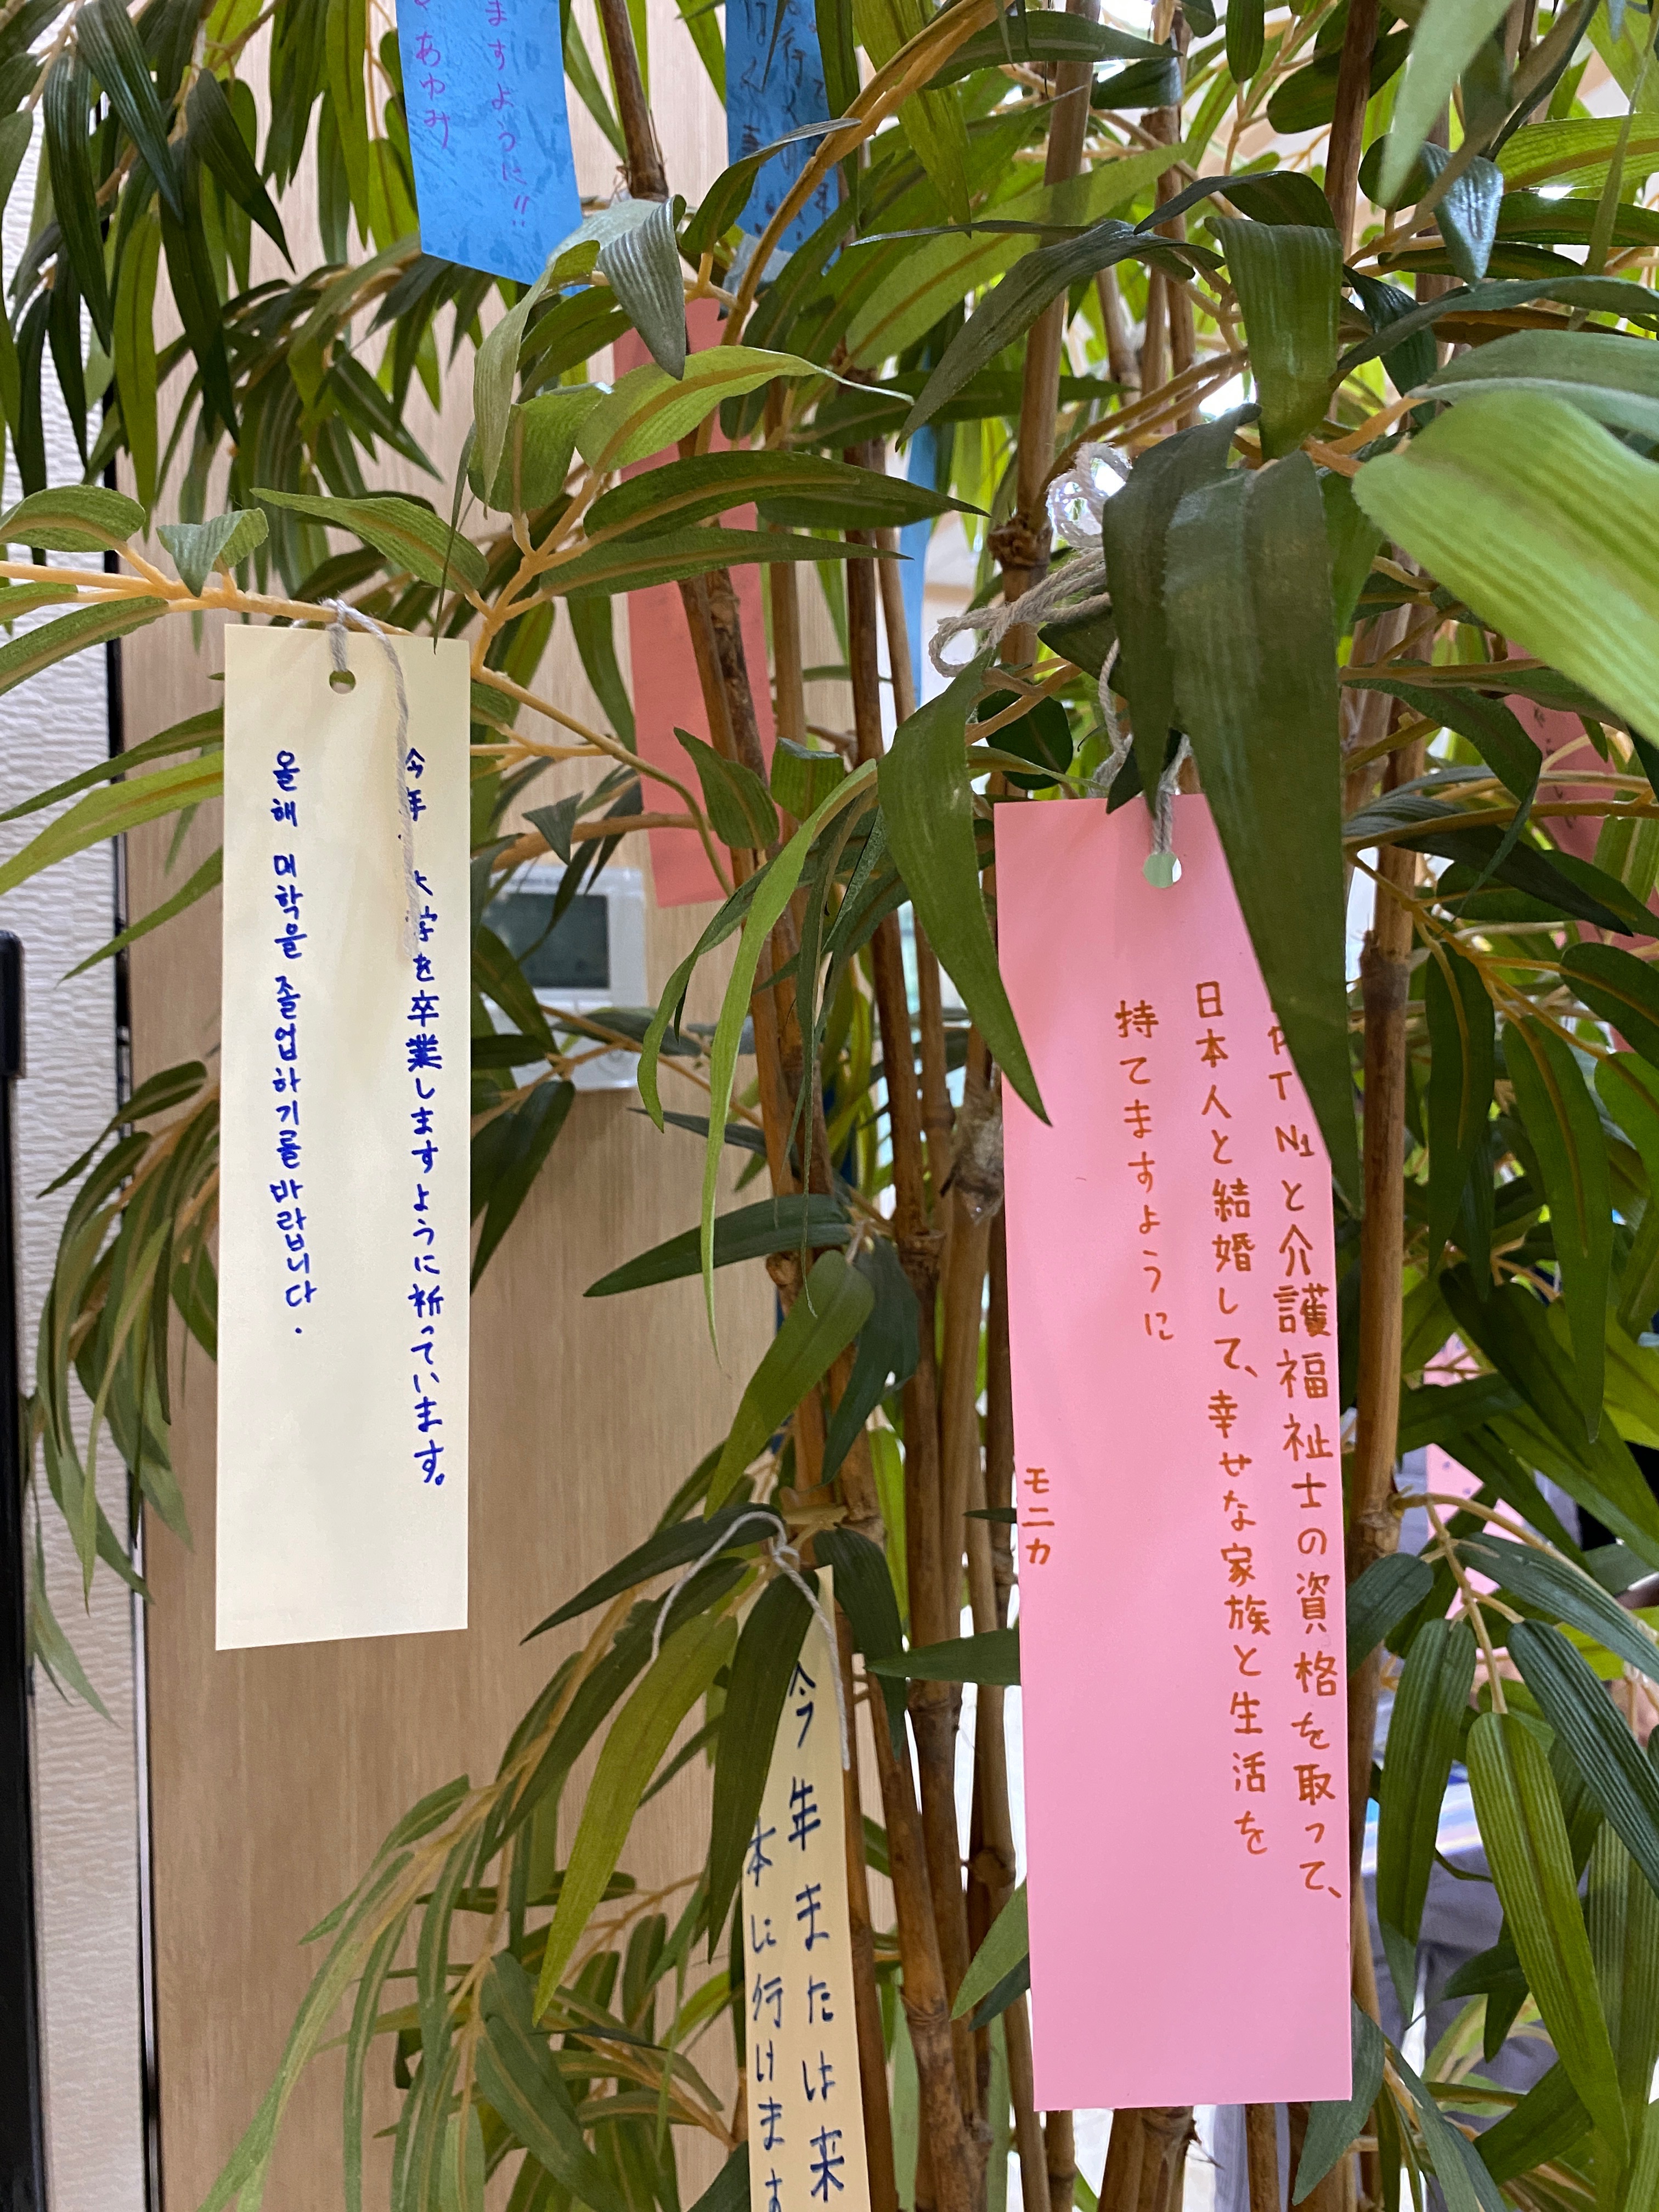 ますように!!
あゆみ
今年、大学を卒業しますように祈っています。
올해 대학을 졸업하기를 바랍니다.
PT N1と介護福祉士の資格を取って、
日本人と結婚して、幸せな家族と生活を
持てますように
モニカ
今年または来
本に行けます